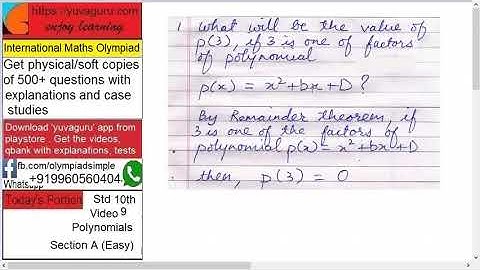 https://yuvaguru.com
enjoy learning
International Maths Olympiad
Get physical/soft copies
of 500+ questions with
explanations and case
studies
Download 'yuvaguru' app from
playstore Get the videos,
qbank with explanations, tests
fb.com/olympiadsimple
Whatsapp +919960560404
Today's Portion
Std 10th
Video 9
Polynomials
Section A (Easy)
1 What will be the value of
p(3), if 3 is one of factors
of polynomial
p(x) = x² + bx + D ?
By Remainder theorem, if
3 is one of the factors of
polynomial p(x) = x² + bx + D
then, p(3) = 0